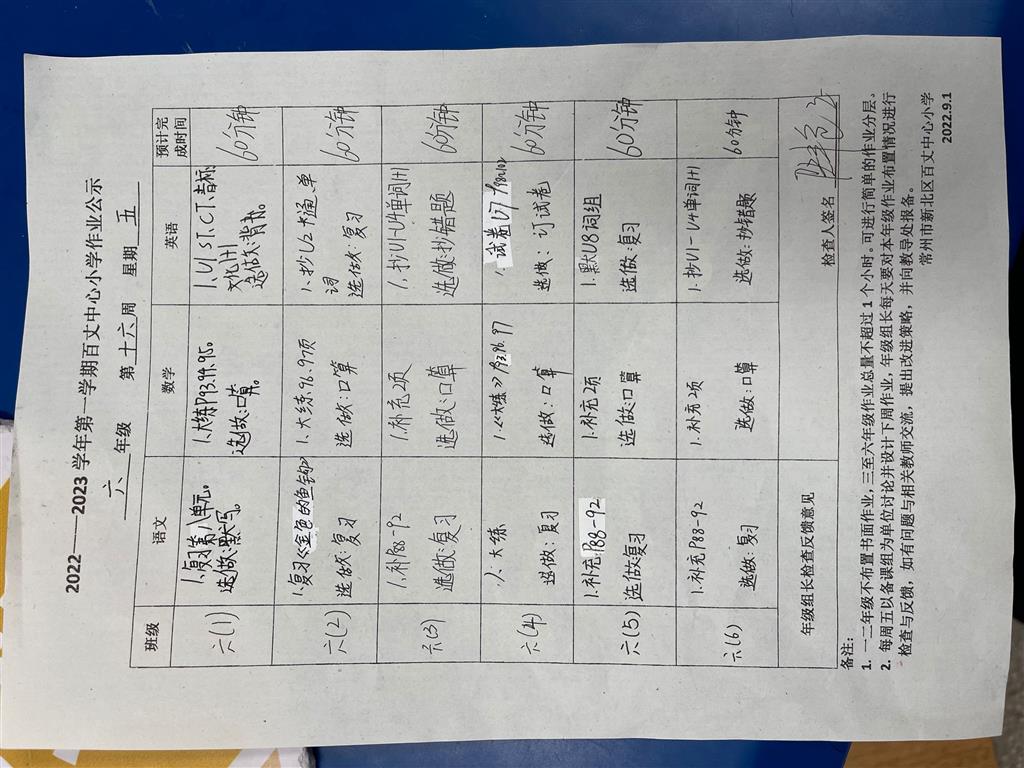 2022——2023 学年第一学期百丈中心小学作业公示
六 年级 第 十六 周 星期 五
班级 语文 数学 英语 预计完成时间
六(1) 1.复习第八单元。 1.大练P93.94.95。 1.U1 ST.CT.音标 60分钟
选做:默写。 选做:口算。 选做:背书。
六(2) 1.复习《金色的鱼钩》 1.大练:96.97页 1.抄U2卡通、单词 60分钟
选做:复习 选做:口算 选做:复习
六(3) 1.补P88-92 1.补充2项 1.抄U1-U4单词1+1 60分钟
选做:复习 选做:口算 选做:抄错题
六(4) 1.大练 1.《大练》P93.96.97 1.试卷U7 60分钟
选做:复习 选做:口算 选做:订试卷
六(5) 1.补充P88-92 1.补充2项 1.默U8词组 60分钟
选做:复习 选做:口算 选做:复习
六(6) 1.补充P88-92 1.补充2项 1.抄U1-U4单词1+1 60分钟
选做:复习 选做:口算 选做:抄错题
年级组长检查反馈意见 检查人签名
备注:
1. 一二年级不布置书面作业,三至六年级作业总量不超过 1 个小时。可进行简单的作业分层。
2. 每周五以备课组为单位讨论并设计下周作业,年级组长每天要对本年级作业布置情况进行
检查与反馈,如有问题与相关教师交流,提出改进策略,并向教导处报备。
常州市新北区百丈中心小学
2022.9.1